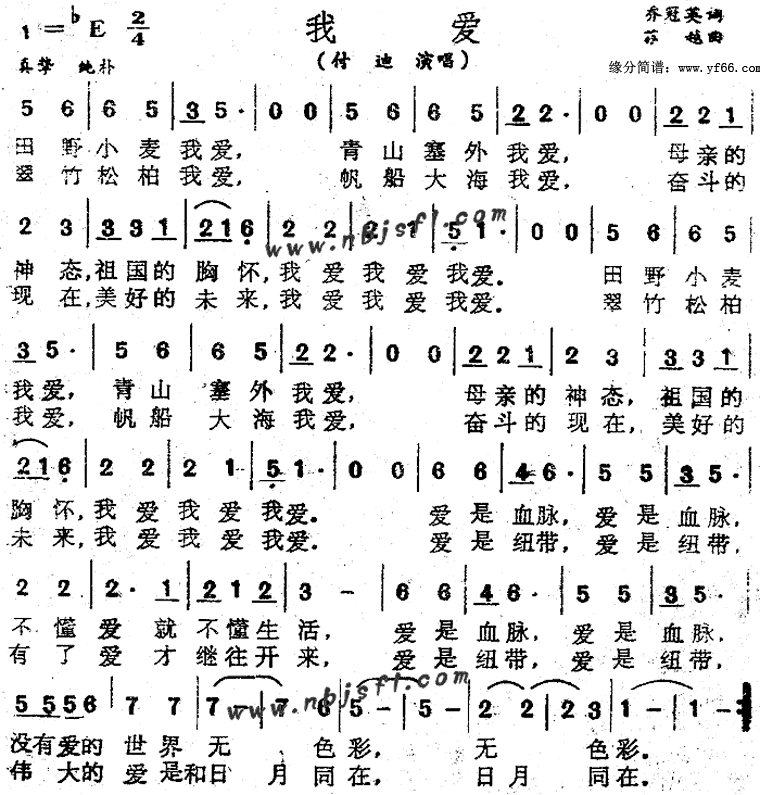 1=♭E 2/4 我 爱 乔冠英词
(付 迪 演唱) 曲
真挚 纯朴 缘分简谱：www.yf66.com
5 6 | 6 5 | 3 5· | 0 0 | 5 6 | 6 5 | 2 2· | 0 0 | 2 2 1 |
田野小麦我爱, 青山塞外我爱, 母亲的
翠竹松柏我爱, 帆船大海我爱, 奋斗的
2 3 | 3 3 1 | 2 1 6 | 2 2 | 2 1 | 5 1· | 0 0 | 5 6 | 6 5 |
www.nbjsfl.com
神态,祖国的胸怀,我爱我爱我爱. 田野小麦
现在,美好的未来,我爱我爱我爱. 翠竹松柏
3 5· | 5 6 | 6 5 | 2 2· | 0 0 | 2 2 1 | 2 3 | 3 3 1 |
我爱, 青山塞外我爱, 母亲的神态, 祖国的
我爱, 帆船大海我爱, 奋斗的现在, 美好的
2 1 6 | 2 2 | 2 1 | 5 1· | 0 0 | 6 6 | 4 6· | 5 5 | 3 5· |
胸怀,我爱我爱我爱. 爱是血脉, 爱是血脉,
未来,我爱我爱我爱. 爱是纽带, 爱是纽带,
2 2 | 2· 1 | 2 1 2 | 3 － | 6 6 | 4 6· | 5 5 | 3 5· |
不懂爱就不懂生活, 爱是血脉, 爱是血脉,
有了爱才继往开来, 爱是纽带, 爱是纽带,
5 5 5 6 | 7 7 | 7 － | 7 6 | 5 － | 5 － | 2 2 | 2 3 | 1 － | 1 － :‖
www.nbjsfl.com
没有爱的世界无 色彩, 无 色彩.
伟大的爱是和日月同在, 日月同在.